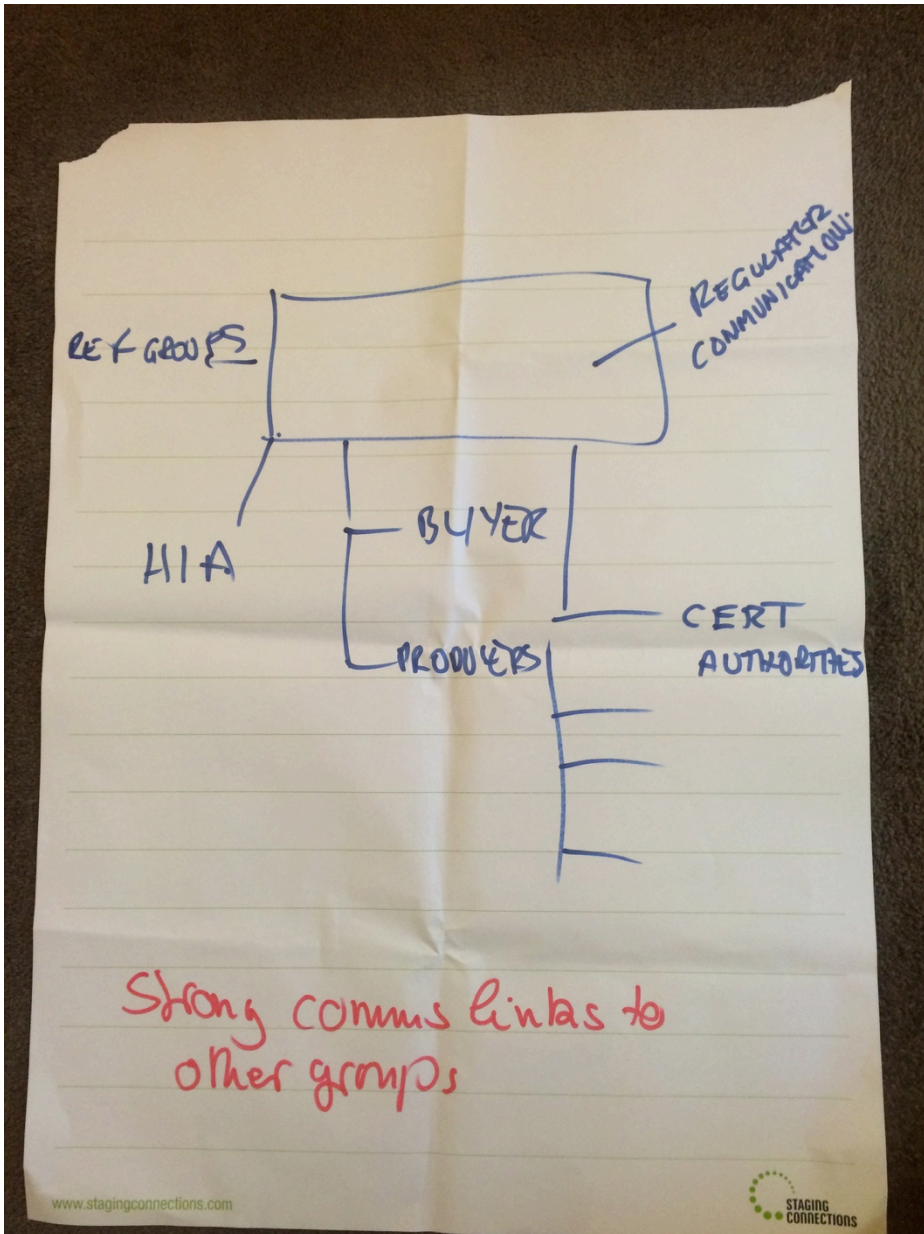 REGULATER
COMMUNICATION.
REF GROUPS
HIA
BUYER
PRODUCERS
CERT
AUTHORITIES
Strong comms links to
other groups
www.stagingconnections.com
STAGING
CONNECTIONS